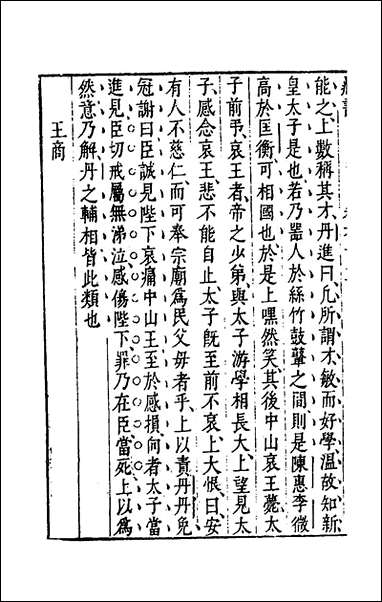 能之上數稱其才丹進曰凡所謂才敏而好學溫故知新
皇太子是也若乃器人於絲竹鼓鼙之間則是陳惠李微
高於匡衡可相國也於是上嘿然笑其後中山哀王薨太
子前弔哀王者帝之少弟與太子游學相長大上望見太
子感念哀王悲不能自止太子旣至前不哀上大恨曰安
有人不慈仁而可奉宗廟爲民父母者乎上以責丹丹免
冠謝曰臣誠見陛下哀痛中山王至於感損向者太子當
進見臣切戒屬無涕泣感傷陛下罪乃在臣當死上以爲
然意乃解丹之輔相皆此類也
王商